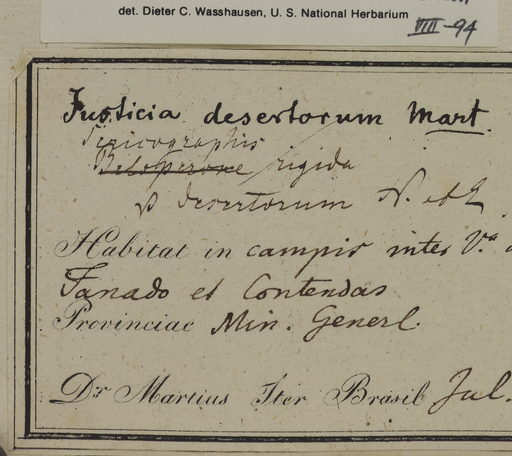 det. Dieter C. Wasshausen, U. S. National Herbarium
VIII-94
Justicia desertorum Mart.
Sericographis
Beloperone rigida
β desertorum N. ab E
Habitat in campis inter V.ª
Fanado et Contendas
Provinciae Min. Generl.
Dr Martius Iter Brasil Jul.